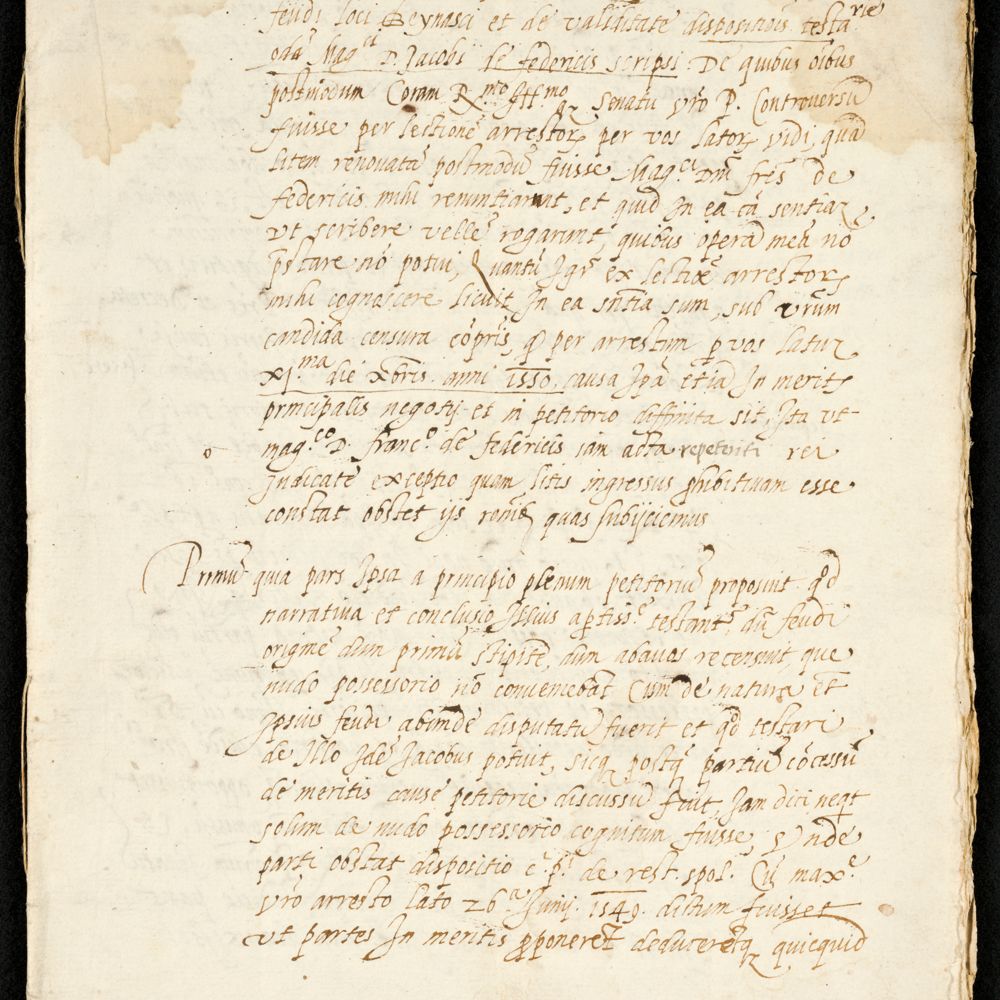 feudi loci Beynasci et de validitate dispositiōis testa rie
odā Mag.ci D. Jacobi de federicis scripsi. De quibus oībus
postmodum Coram R.mo Ill.mo Senatu vr̄o P. Controversū
fuisse per lectionē arrestor per vos lator vidi, quā
litem renovatā postmodū fuisse Mag.ci Dnī frēs de
federicis mihi renuntiarunt, et quid In ea cā sentiaz
ut scribere vellē rogarunt, quibus operā meā nō
pr̄stare nō potui, Quantū Igr̄ ex lectiōe arrestor
mihi cognoscere licuit In ea sn̄tia sum, sub vr̄arum
candida censura cōpr̄is, qd per arrestum p vos latuz
xj.ma die xbris anni 1550 causa Ipā etiā In merit
principalis negotij et in petitorio diffinita sit, Ita ut
mag.co D. franc.o de federicis iam acta repetenti rei
Judicatē exceptio quam litis ingressus phibitivam esse
constat obstet ijs rōnib quas subijciemus
Primū quia pars Ipsa a principio plenum petitoriū proposuit qd
narrativa et conclusio Illius aptiss.e testant, dū feudi
originē dum primū stipitē, dum abavos recensuit, que
nudo possessorio nō conveniebāt Cum de natura et
Ipsius feudi abinde disputatū fuerit et qd testari
de Illo Idē Jacobus potuit, sicq postq partiū cōcessū
de meritis cause petitorie discussū fuit, Iam dici neqt
solum de nudo possessorio cognitum fuisse, Unde
parti obstat dispositio c. p. de rest. spol. Cū max.e
vr̄o arresto lato 26.a Junij 1549. dictum fuisset
ut partes In meritis pponerēt deducerētq quicquid